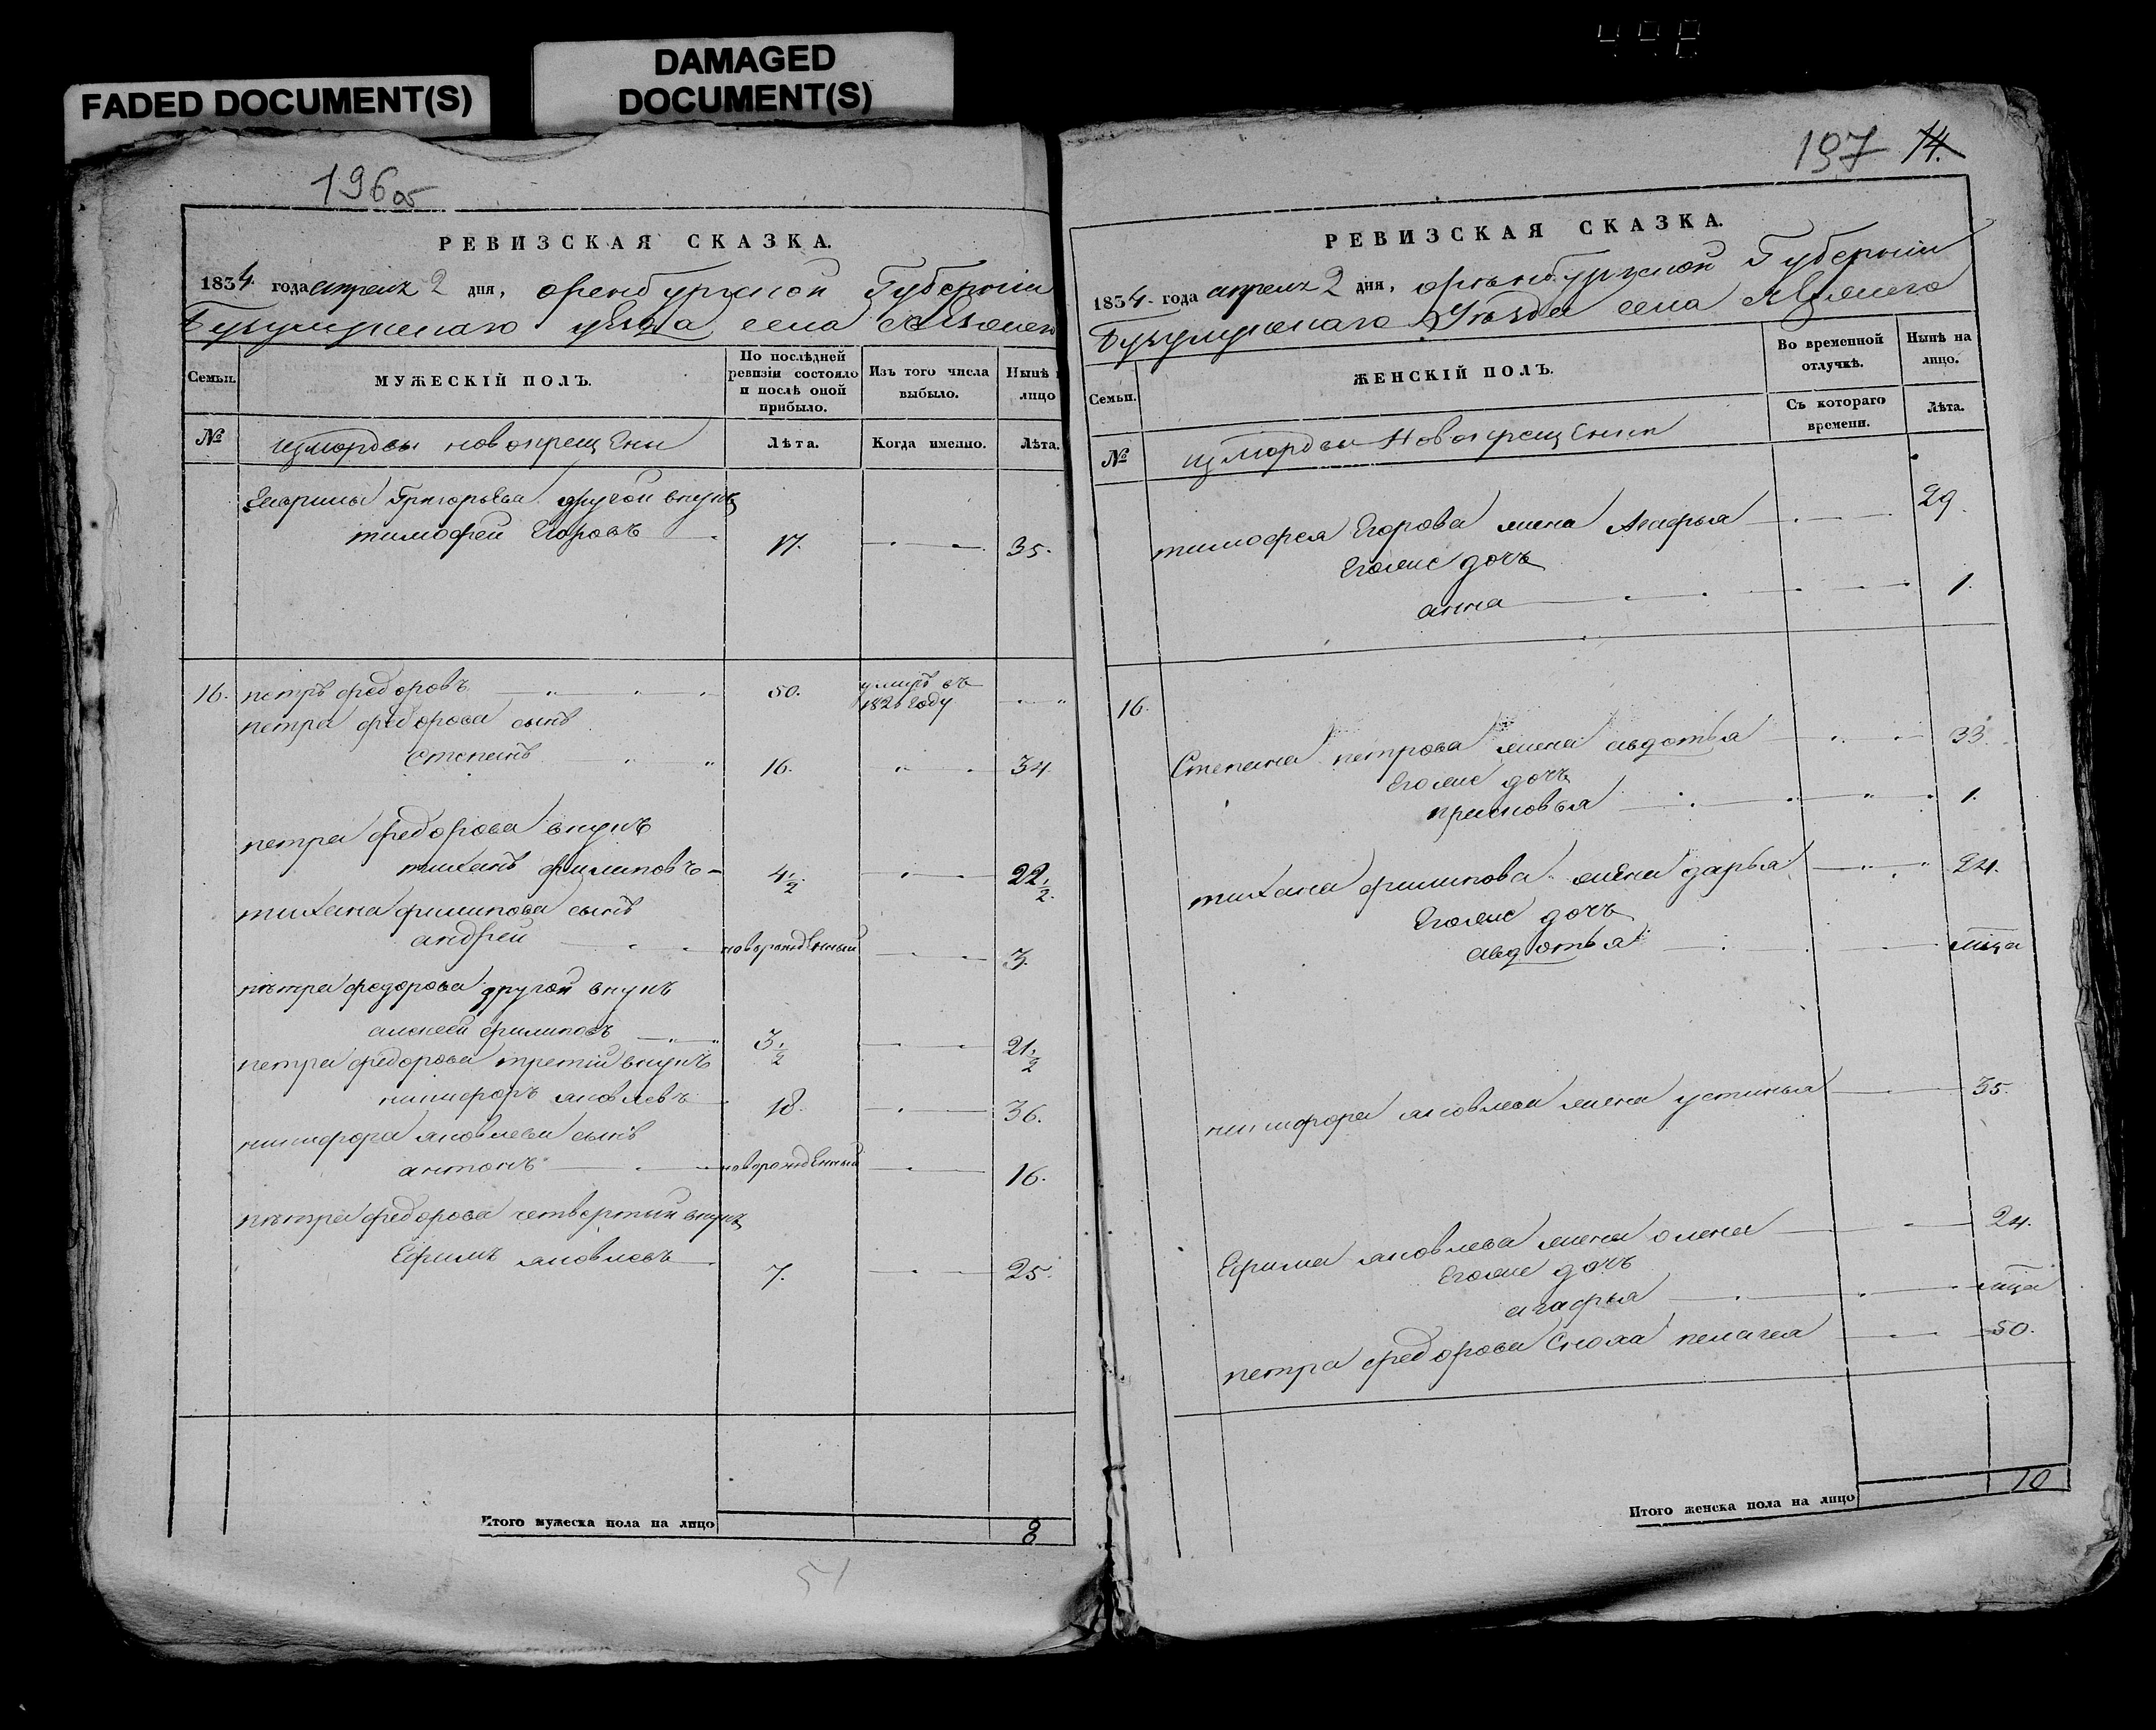 FADED DOCUMENT(S)
DAMAGED
DOCUMENT(S)
498
196об
РЕВИЗСКАЯ СКАЗКА.
1834 года апреля 2 дня, оренбургской Губернии
Бугульминского уезда села
Семьи.
МУЖЕСКІЙ ПОЛЪ.
По послѣдней ревизіи состояло и послѣ оной прибыло.
Изъ того числа выбыло.
Нынѣ лицо
№
измордвы новокрещены
Лѣта.
Когда именно.
Лѣта.
Григорьева другой внукъ
тимофей Егоровъ 17. 35.
16. петръ федоровъ 50. умиръ въ 1826 году
петра федорова сынъ
степанъ 16. 34
петра федорова внукъ
тиханъ филиповъ 4 1/2 22 1/2.
тихана филипова сынъ
андрей новорожденный 3.
петра федорова другой внукъ
алексей филиповъ 3 1/2 21 1/2
петра федорова третий внукъ
никифоръ яковлевъ 18. 36.
никифора яковлева сынъ
антонъ новорожденный 16.
петра федорова четвертый внукъ
Ефимъ яковлевъ 7. 25.
Итого мужеска пола на лицо 8
51
197 14.
РЕВИЗСКАЯ СКАЗКА.
1834 года апреля 2 дня, оренбургской Губернии
Бугульминского уезда села
Семьи.
ЖЕНСКІЙ ПОЛЪ.
Во временной отлучкѣ.
Нынѣ на лицо.
Съ котораго времени.
Лѣта.
№
измордвы Новокрещенки
тимофея Егорова жена 29.
Егоже дочь
анна 1.
16.
Степана петрова жена авдотья 33.
Егоже дочь
прасковья 1.
тихана филипова жена дарья 24.
Егоже дочь
авдотья мѣца
никифора яковлева жена устинья 35.
Ефима яковлева жена олена 24.
Егоже дочь
агафья мѣца
петра федорова сноха пелагея 50.
Итого женска пола на лицо 10